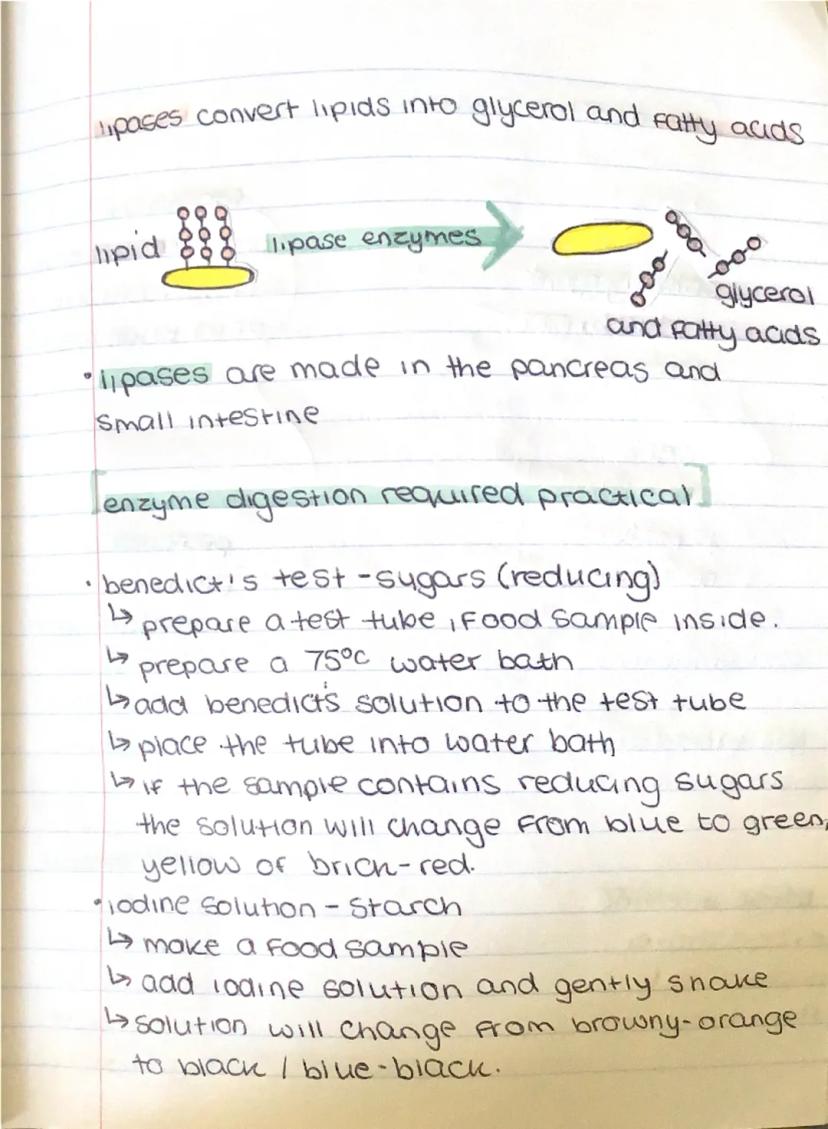 lipases convert lipids into glycerol and fatty acids
lipid lipase enzymes
glycerol
and fatty acids
• lipases are made in the pancreas and
small intestine
[enzyme digestion required practical]
• benedict's test - sugars (reducing)
↳ prepare a test tube, food sample inside.
↳ prepare a 75°C water bath
↳ add benedict's solution to the test tube
↳ place the tube into water bath
↳ if the sample contains reducing sugars
the solution will change from blue to green,
yellow or brick-red.
• iodine solution - starch
↳ make a food sample
↳ add iodine solution and gently shake
↳ solution will change from browny-orange
to black / blue-black.